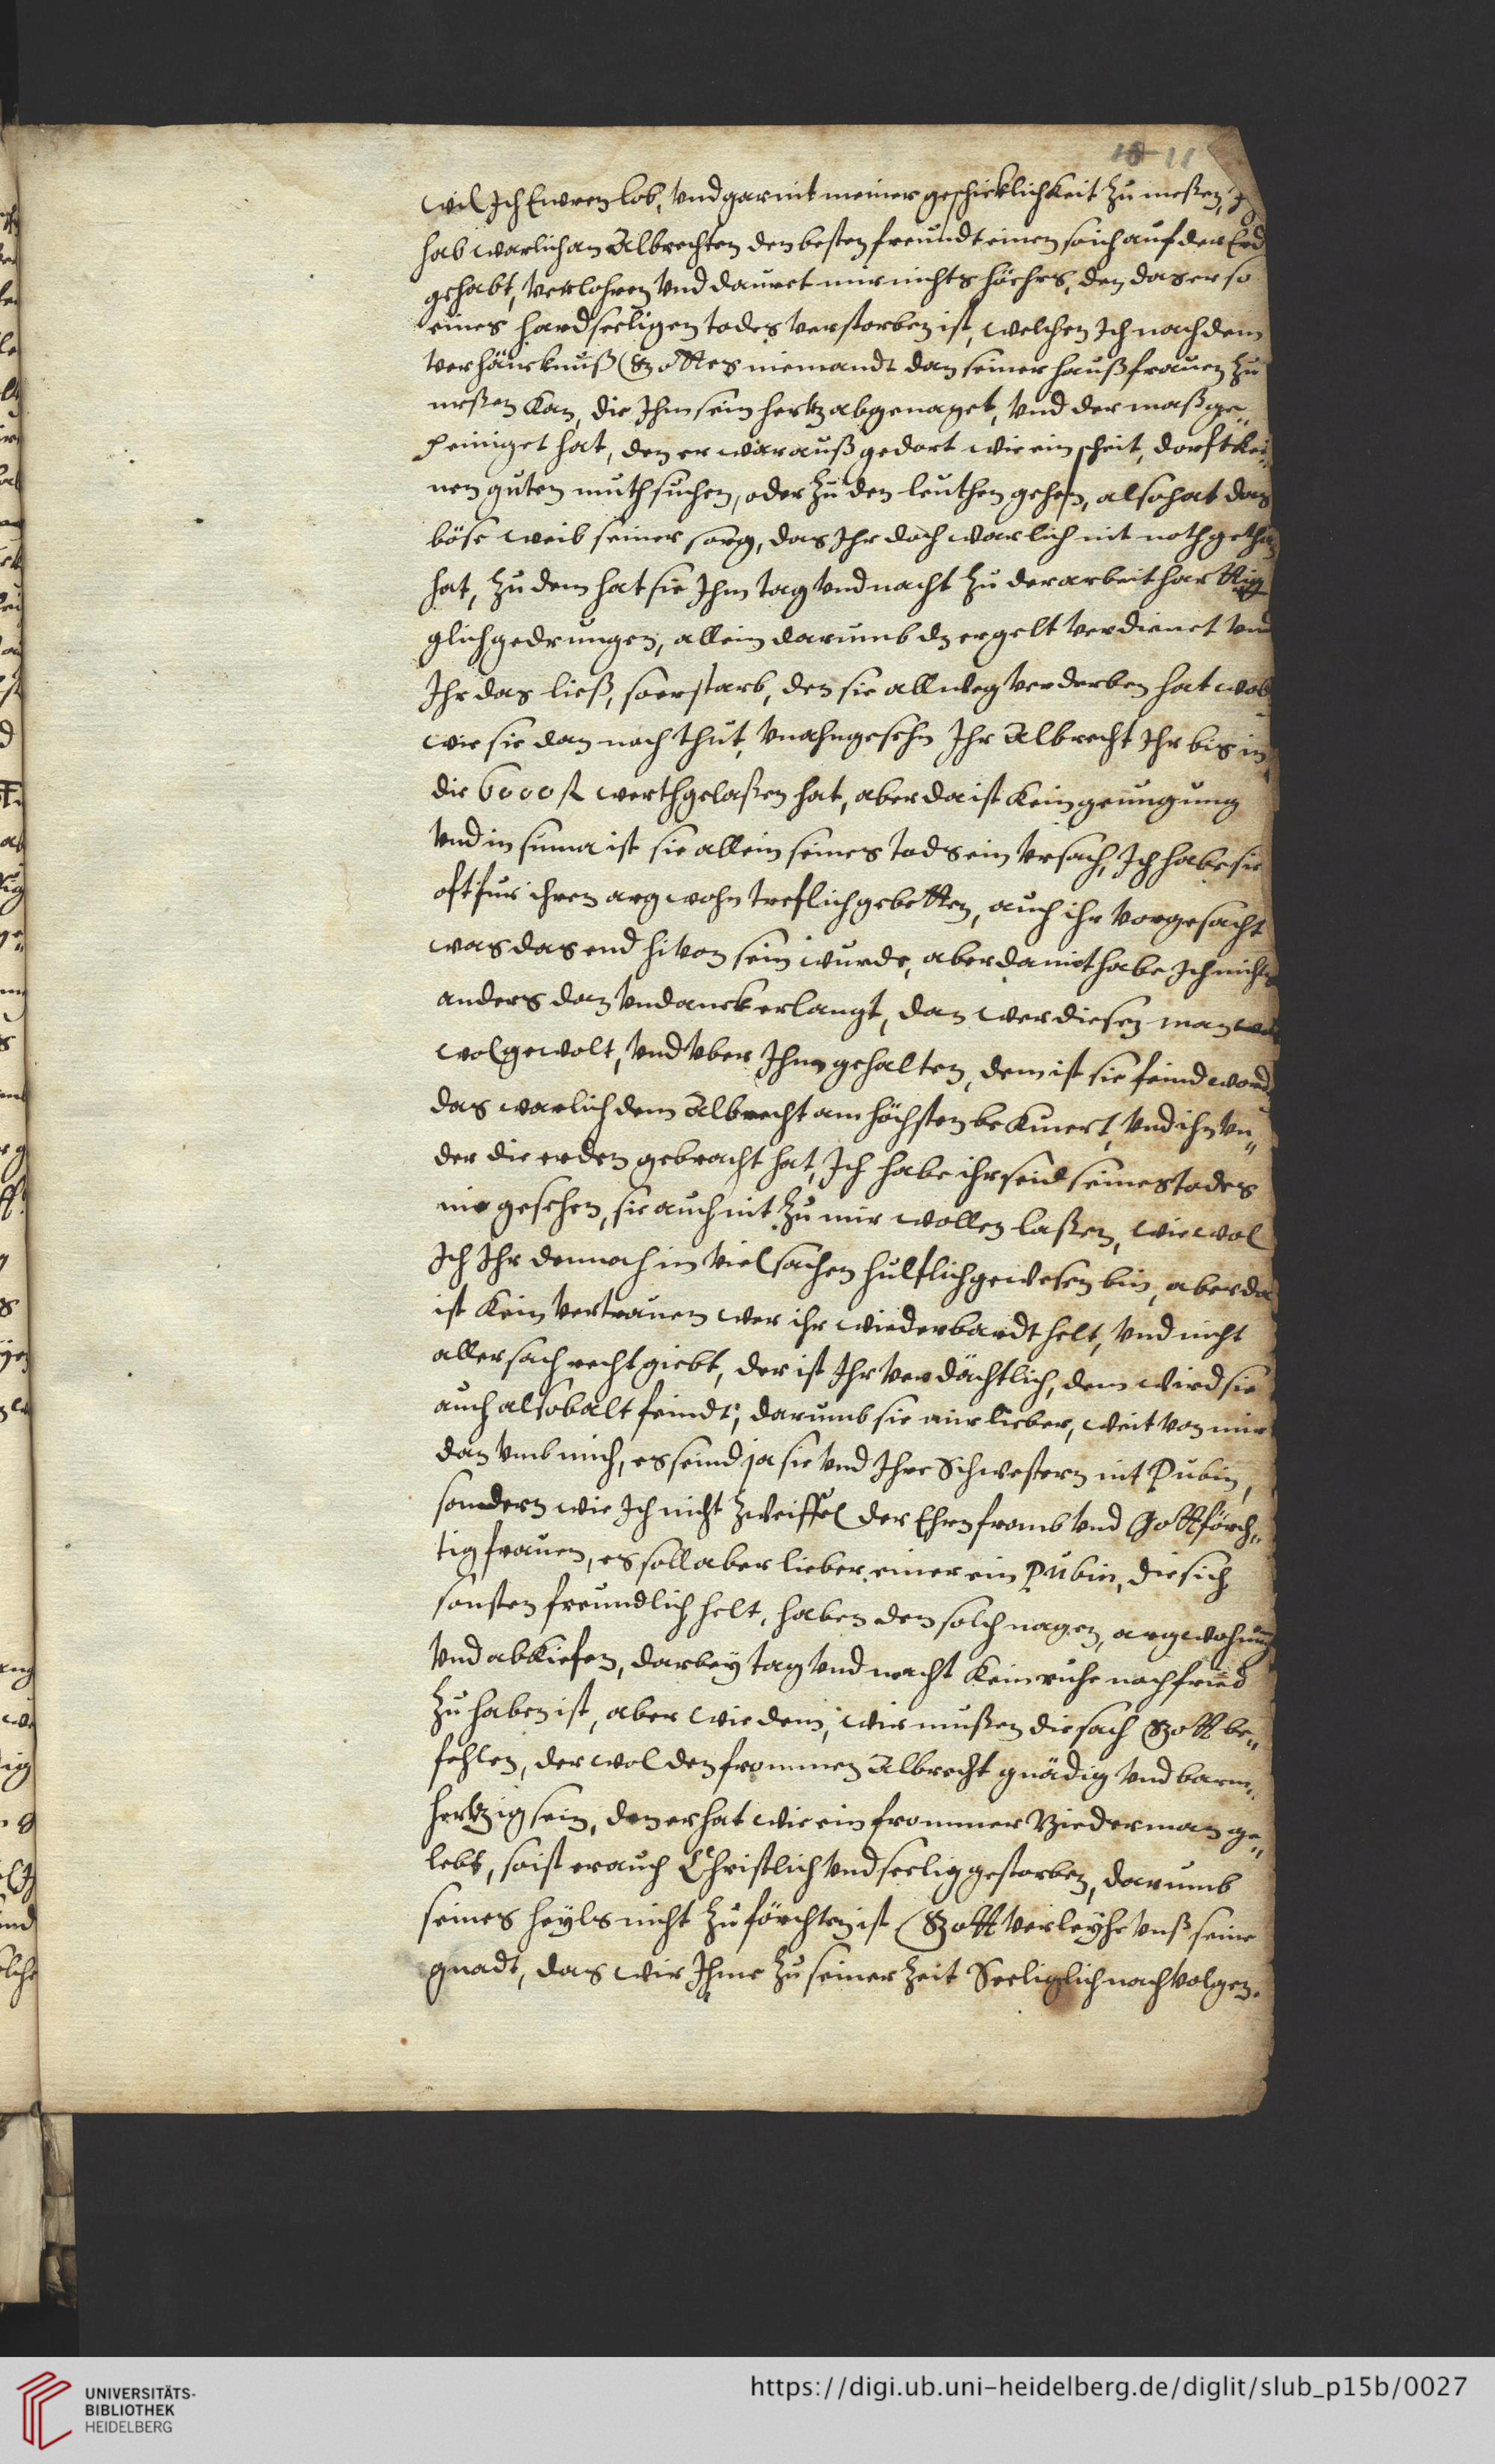 10 11
wil Ich Ewren lob, vnd gar nit meiner geschicklichkeit zu meßen, Ich
hab warlich an Albrechten den besten freundt einen so ich auf der Erd
gehabt, verlohren vnd dauret mir nichts höhers, den das er so
eines hardseeligen todes verstorben ist, welchen Ich nach dem
verhäncknuß Gottes niemandt dan seiner haußfrauen zu
meßen kan, die Ihm sein hertz abgenaget, vnd der maß ge„
peiniget hat, den er war auß gedort wie ein scheit, dorft kei„
nen guten muth suchen, oder zu den leuthen gehen, also hat das
böse weib seiner sorg, das Ihr doch warlich nit noth gethan
hat, zu dem hat sie Ihm tag vnd nacht zu der arbeit harttig
glich gedrungen, allein darumb dz er gelt verdienet vnd
Ihr das ließ, so er starb, den sie allweg verderben hat wol
wie sie dan noch thut, vnahngesehn Ihr Albrecht Ihr bis in
die 6000 fl werth gelaßen hat, aber da ist kein genugung
vnd in suma ist sie allein seines tods ein vrsach, Ich habe sie
oft fur ihren argwohn treflich gebetten, auch ihr vorgesacht
was das end hivon sein wurde, aber damit habe Ich nichts
anders dan vndanck erlangt, dan wer diesen man
wol gewolt, vnd vber Ihm gehalten, dem ist sie feind word
das warlich dem Albrecht am höchsten bekumert, vnd ihn vn„
der die erden gebracht hat, Ich habe ihr seid seines todes
nie gesehen, sie auch nit zu mir wollen laßen, wie wol
Ich Ihr dennoch in viel sachen hulflich gewesen bin, aber da
ist kein vertrauen wer ihr wiederbardt helt, vnd nicht
aller sach recht giebt, der ist Ihr verdächtlich, dem wird sie
auch alsobalt feindt; darumb sie mir lieber, weit von mir
dan vmb mich, es seind ja sie vnd Ihre Schwestern nit Pubin,
sondern wie Ich nicht zweiffel der Ehren fromb vnd Gottförch„
tig frauen, es soll aber lieber einer ein Pubin, die sich
sonsten freundlich helt, haben den solch nagen, argwohnung
vnd abkiefen, darbey tag vnd nacht kein ruhe nach fried
zu haben ist, aber wie dem, wir mußen die sach Gott be„
fehlen, der wol den frommen Albrecht gnädig vnd barm„
hertzig sein, den er hat wie ein frommer Biederman ge„
lebt, so ist er auch Christlich vnd seelig gestorben, darumb
seines heyls nicht zu förchten ist Gott verleyhe vnß seine
gnadt, das wir Ihme zu seiner zeit Seeliglich nachvolgen.
UNIVERSITÄTS-
BIBLIOTHEK
HEIDELBERG
https://digi.ub.uni-heidelberg.de/diglit/slub_p15b/0027